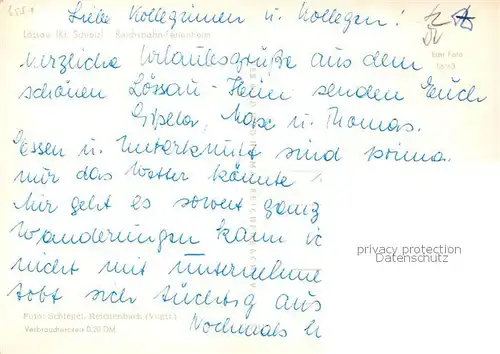 Liebe Kolleginnen u. Kollegen!
Lössau (Kr. Schleiz) Reichsbahn-Ferienheim
Herzliche Urlaubsgrüße aus dem
schönen Lössau-Heim senden Euch
Gisela, Maxe u. Thomas.
Essen u. Unterkunft sind prima
nur das Wetter könnte
Mir geht es soweit ganz
Wanderungen kann ic
nicht mit unternehme
tobt sich tüchtig aus
Foto: Schlegel, Reichenbach (Vogtl.)
Verbraucherpreis 0,20 DM
Nochmals
privacy protection